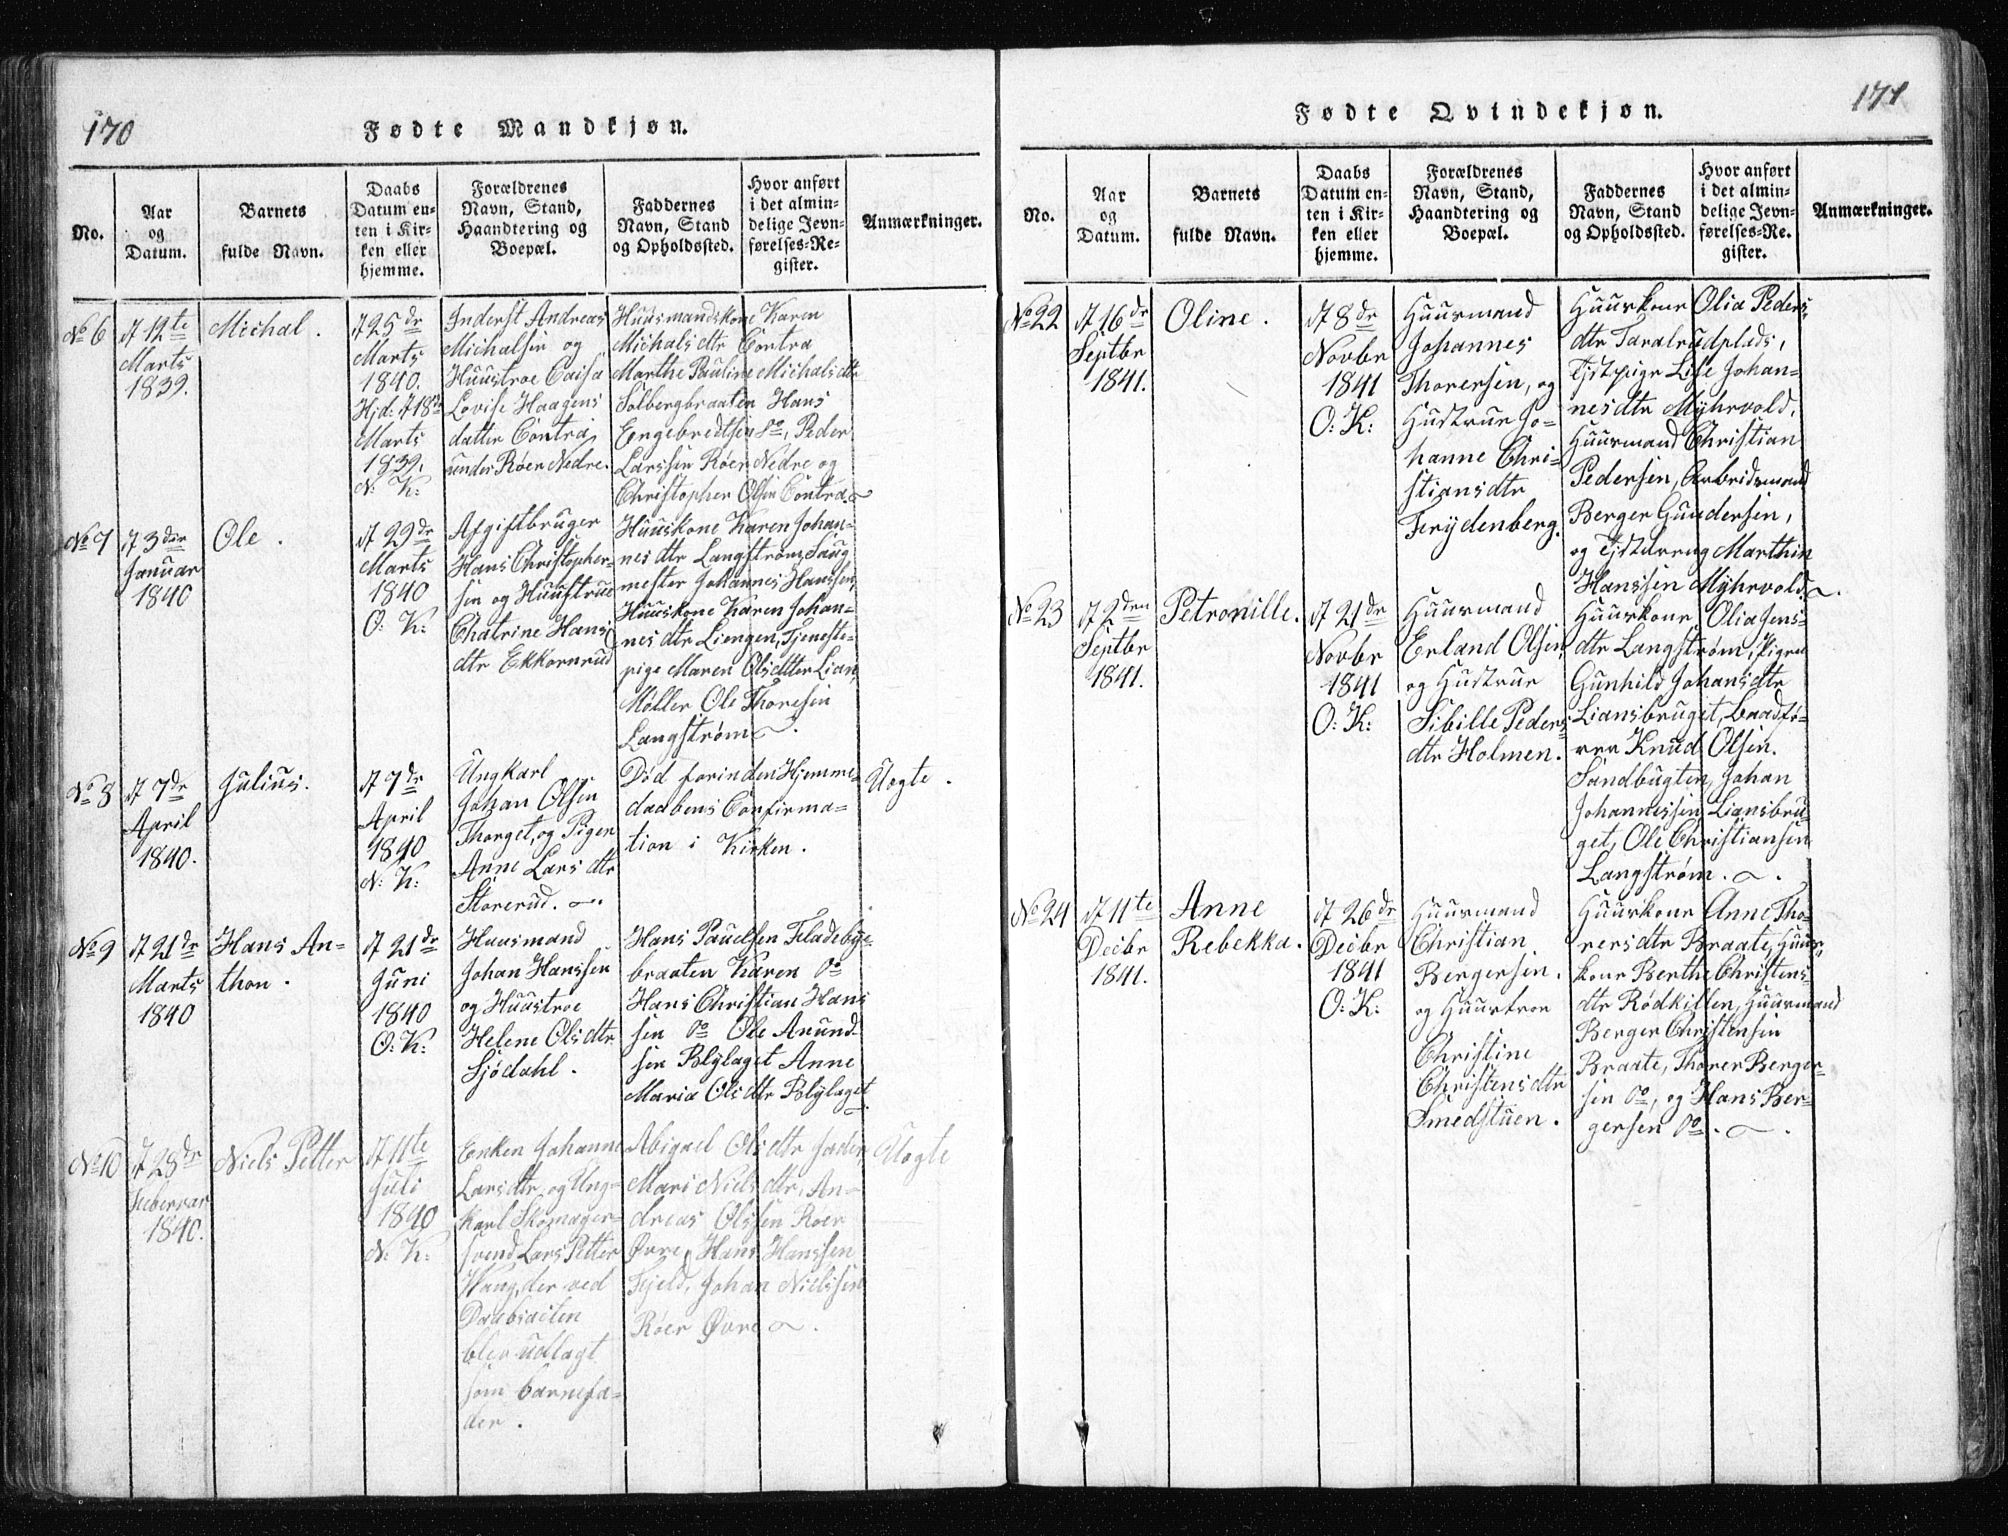 170
Fødte Mandkjøn.
No.
Aar
og
Datum.
Barnets
fulde Navn.
Daabs
Datum en-
ten i Kir-
ken eller
hjemme.
Forældrenes
Navn, Stand,
Haandtering og
Boepæl.
Faddernes
Navn, Stand
og Opholdssted.
Hvor anført
i det almin-
delige Jevn-
førelses-Re-
gister.
Anmærkninger.
No 6
d 12te
Marts
1839.
Michal.
d 25de
Marts
1840.
Hjd: d 18de
Marts
1839.
N: K:
Inderst Andreas
Michalsen og
Huustroe Caisa
Lovise Haagens
datter Contra
under Røer Nedre.
Huusmandskone Karen
Michalsdtr Contra
Marthe Pauline Michalsdtr
Solbergbraaten Hans
Engebredtsen do, Peder
Larssen Røer Nedre og
Christopher Olsen Contra.
No 7
d 3die
Januar
1840
Ole.
d 29de
Marts
1840
O: K:
Afgiftbruger
Hans Christopher-
sen og Huustrue
Chatrine Hans
dtr Ekkornrud
Huuskone Karen Johan-
nesdtr Langstrøm, Saug
mester Johannes Hanssen,
Huuskone Karen Johan-
nesdtr Liengen, Tjeneste-
pige Maren Olsdtter Lian,
Møller Ole Thoresen
Langstrøm.
No 8
d 7de
April
1840.
Julius.
d 7de
April
1840
N: K:
Ungkarl
Johan Olsen
Thorget, og Pigen
Anne Larsdtr
Storerud.
Død forinden Hjemme-
daabens Confirma-
tion i Kirken.
Uegte.
No 9
d 21de
Marts
1840
Hans An-
thon.
d 21de
Juni
1840
O: K:
Huusmand
Johan Hanssen
og Huustroe
Helene Olsdtr
Sjødahl.
Hans Pauelsen Fladebye-
braaten Karen do
Hans Christian Hans
sen do Ole Amund-
sen Blylaget Anne
Maria Olsdtr Blylaget
No 10
d 28de
Februar
1840.
Niels Petter
d 11te
Juli
1840
N: K:
Enken Johanne
Larsdtr, og Ung-
karl Skomager-
svend Lars Petter
Haug, der ved
Daabsacten
blev udlagt
som Barnefa-
der.
Abigael Olsdtr
Mari Nielsdtr, An-
dreas Olssen Roer
Øvre, Hans Hanssen
Fjeld, Johan Nielssen
Røer Øvre.
Uegte
171
Fødte Qvindekjøn.
No.
Aar
og
Datum.
Barnets
fulde Navn.
Daabs
Datum en-
ten i Kir-
ken eller
hjemme.
Forældrenes
Navn, Stand,
Haandtering og
Boepæl.
Faddernes
Navn, Stand
og Opholdssted.
Hvor anført
i det almin-
delige Jevn-
førelses-Re-
gister.
Anmærkninger.
No 22
d 16de
Septbr
1841.
Oline.
d 8de
Novbr
1841
O: K:
Huusmand
Johannes
Thorersen, og
Hustrue Jo-
hanne Chri-
stiansdtr
Frydenberg.
Huuskone Olia Peders-
dtr Taralrudplads,
Tjstpige Lise Johan-
nesdtr Myhrvold,
Huusmand Christian
Pedersen, Arbeidsmand
Berger Gundersen,
og Tjstdreng Marthin
Hanssen Myhrvold.
No 23
d 2den
Septbr
1841.
Petronille.
d 21de
Novbr
1841
O: K:
Huusmand
Erland Olsen
og Hustrue
Sibille Peders
dtr Holmen.
Huuskone Olia Jens-
dtr Langstrøm, Pigen
Gunhild Johansdtr
Liansbruget, Baadfø-
rer Knud Olsen
Sandbugten, Johan
Johannessen Liansbru-
get, Ole Christiansen
Langstrøm.
No 24
d 11te
Decbr
1841.
Anne
Rebekka.
d 26de
Decbr
1841
O: K:
Huusmand
Christian
Bergersen.
og Huustroe
Christine
Christensdtr
Smedstuen.
Huuskone Anne Tho-
rersdtr Braate, Huus-
kone Berthe Christens-
dtr Rødkillen, Huusmand
Berger Christensen
Braate, Thorer Berger-
sen do, og Hans Ber-
gersen do.